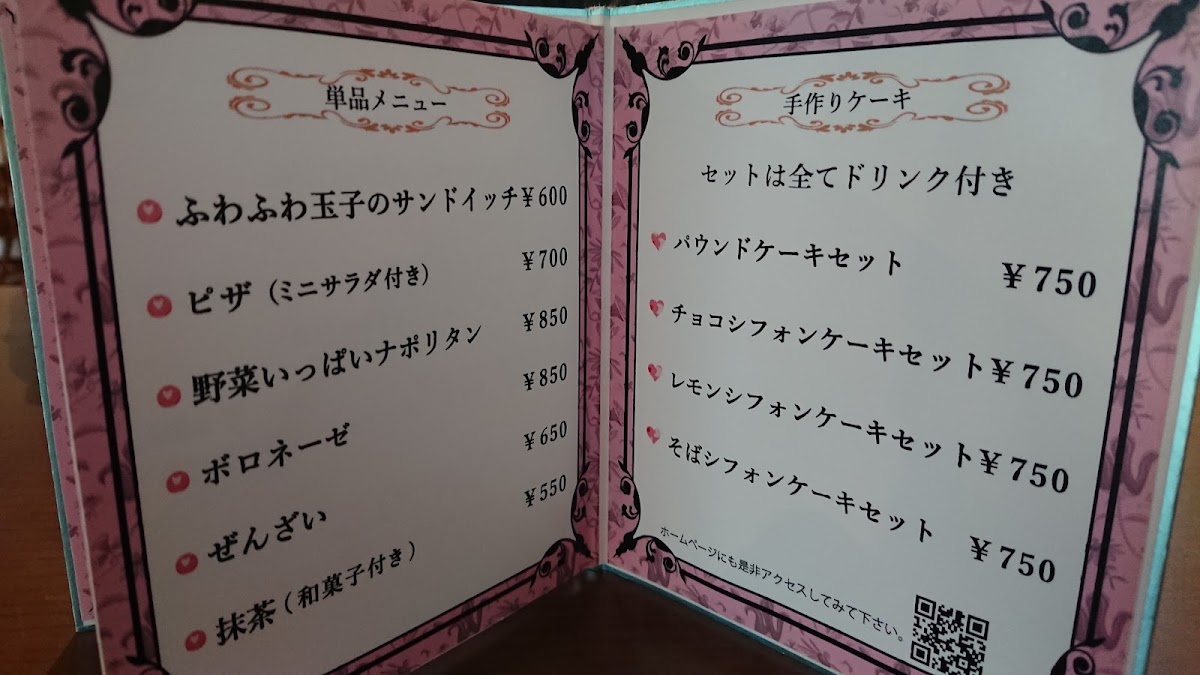 単品メニュー
ふわふわ玉子のサンドイッチ¥600
ピザ（ミニサラダ付き） ¥700
野菜いっぱいナポリタン ¥850
ボロネーゼ ¥850
ぜんざい ¥650
抹茶（和菓子付き） ¥550
手作りケーキ
セットは全てドリンク付き
パウンドケーキセット ¥750
チョコシフォンケーキセット¥750
レモンシフォンケーキセット¥750
そばシフォンケーキセット ¥750
ホームページにも是非アクセスしてみて下さい。